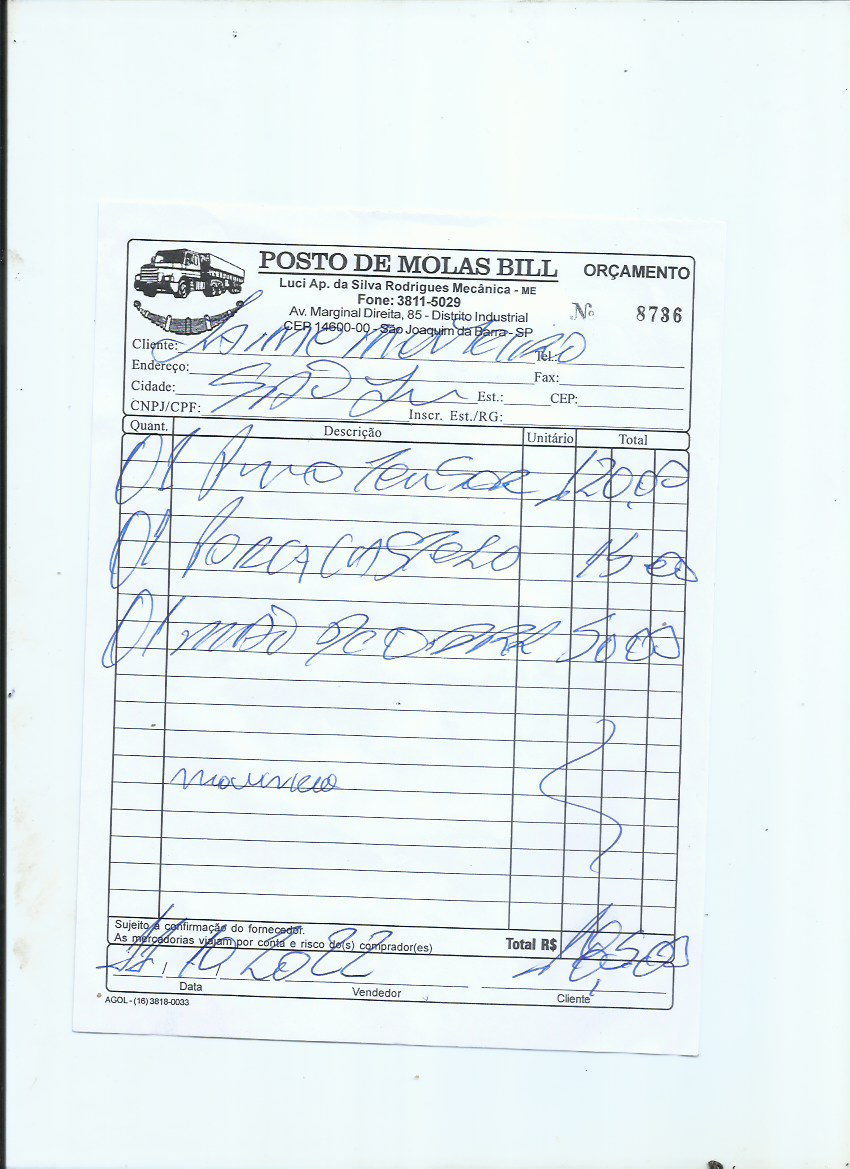 POSTO DE MOLAS BILL
ORÇAMENTO
Luci Ap. da Silva Rodrigues Mecânica - ME
Fone: 3811-5029
Av. Marginal Direita, 85 - Distrito Industrial
CEP 14600-00 - São Joaquim da Barra - SP
Nº 8736
Cliente: Tel.:
Endereço: Fax:
Cidade: SÃO Est.: CEP:
CNPJ/CPF: Inscr. Est./RG:
Quant. Descrição Unitário Total
01 Pino Tensor 120,00
01 PORCA CASTELO 15 00
01 MÃO DE OBRA 50 00
Sujeito a confirmação do fornecedor.
As mercadorias viajam por conta e risco do(s) comprador(es)
Total R$
2022
Data Vendedor Cliente
AGOL - (16) 3818-0033